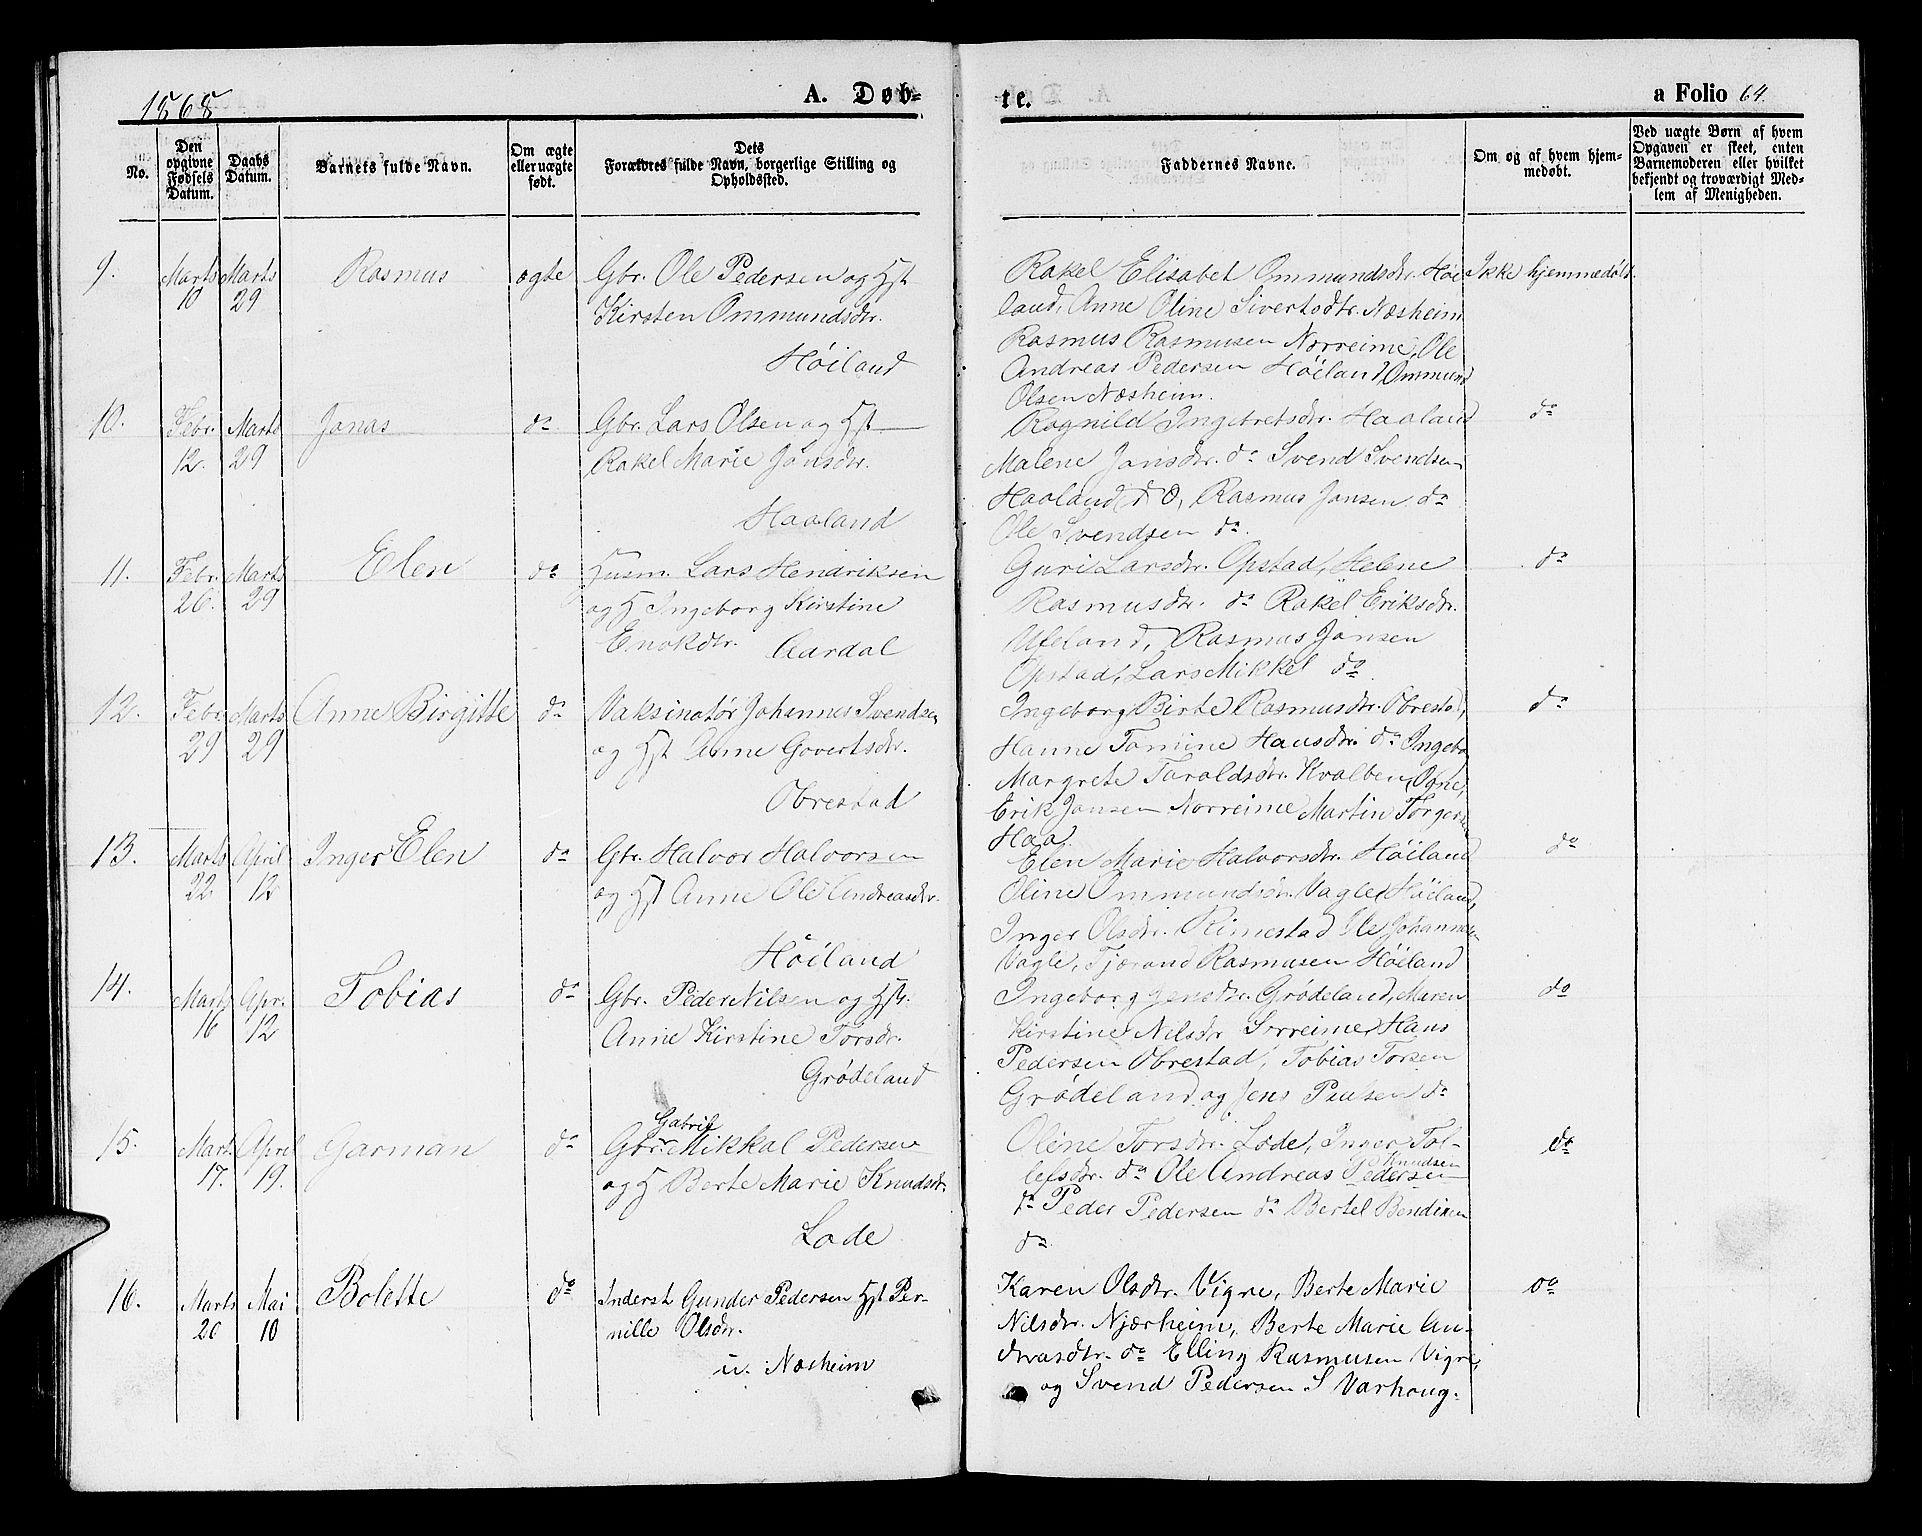 1868
A. Døb-
te.
a Folio 64.
No.
Den opgivne Fødsels Datum.
Daabs Datum.
Barnets fulde Navn.
Om ægte eller uægte født.
Dets Forældres fulde Navn, borgerlige Stilling og Opholdssted.
Faddernes Navne.
Om og af hvem hjem-
medøbt.
Ved uægte Børn af hvem
Opgaven er skeet, enten
Barnemoderen eller hvilket
bekjendt og troværdigt Med-
lem af Menigheden.
9. Marts 10 Marts 29 Rasmus ægte
Gbr. Ole Pedersen og Hst
Kirsten Ommundsdtr.
Høiland
Rakel Elisabet Ommundsdtr. Høi-
land, Anne Oline Sivertsdtr. Næsheim
Rasmus Rasmusen Norreime, Ole
Andreas Pedersen Høiland, Ommund
Olsen Næsheim.
Ikke hjemmedøbt.
10. Febr. 12. Marts 29 Jonas do
Gbr. Lars Olsen og Hst
Rakel Marie Jonsdtr.
Haaland
Ragnild Ingebretsdtr. Haaland
Malene Jansdtr. do Svend Svendsen
Haaland, Rasmus Jansen do
Ole Svendsen do.
do
11. Febr. 26. Marts 29 Elen do
Husm. Lars Hendriksen
og H Ingeborg Kirstine
Enokdtr. Aardal
Guri Larsdtr. Opstad, Helene
Rasmusdtr. do Rakel Eriksdtr.
Ueland, Rasmus Jansen
Opstad, Lars Mikkel do.
do
12. Febr. 29 Marts 29 Anne Birgitte do
Vaksinatør Johannes Svendsen
og Hst Anne Govertsdtr.
Obrestad
Ingeborg Birte Rasmusdtr. Obrestad,
Hanne Tomine Hansdtr. do
Margrete Taraldsdtr. Kvalben, Ogne,
Erik Jansen Norreime Martin
Haa.
do
13. Marts 22 April 12 Inger Elen do
Gbr. Halvor Halvorsen
og Hst Anne Ole Andreasdtr.
Høiland
Elen Marie Halvorsdtr. Høiland
Oline Ommundsdtr. Vagle, Høiland,
Inger Olsdtr. Rimestad Ole
Vagle, Tjærand Rasmusen Høiland
do
14. Marts 16 Apr. 12 Tobias do
Gbr. Peder Nilsen og Hst.
Anne Kirstine Torsdtr.
Grødeland
Ingeborg Jensdtr. Grødeland, Maren
Kirstine Nilsdtr Sorreime, Hans
Pedersen Obrestad, Tobias Torsen
Grødeland og Jens Paulsen do
do
15. Marts 17. April 19. Garman do
Gabriel
Gbr. Mikkal Pedersen
og H Berte Marie Knudsdtr.
Lode
Oline Torsdtr. Lode, Inger Tol-
lefsdtr. do Ole Andreas Pedersen
Knudsen
do Peder Pedersen do Bertel Bendixen
do
do
16. Marts 20 Mai 10 Bolette do
Inderst Gunder Pedersen Hst Per-
nille Olsdtr.
u. Næsheim
Karen Olsdtr. Vigre, Berte Marie
Nilsdtr. Njærheim, Berte Marie An-
dreasdtr. do Elling Rasmusen Vigre,
og Svend Pedersen S Varhoug.
do